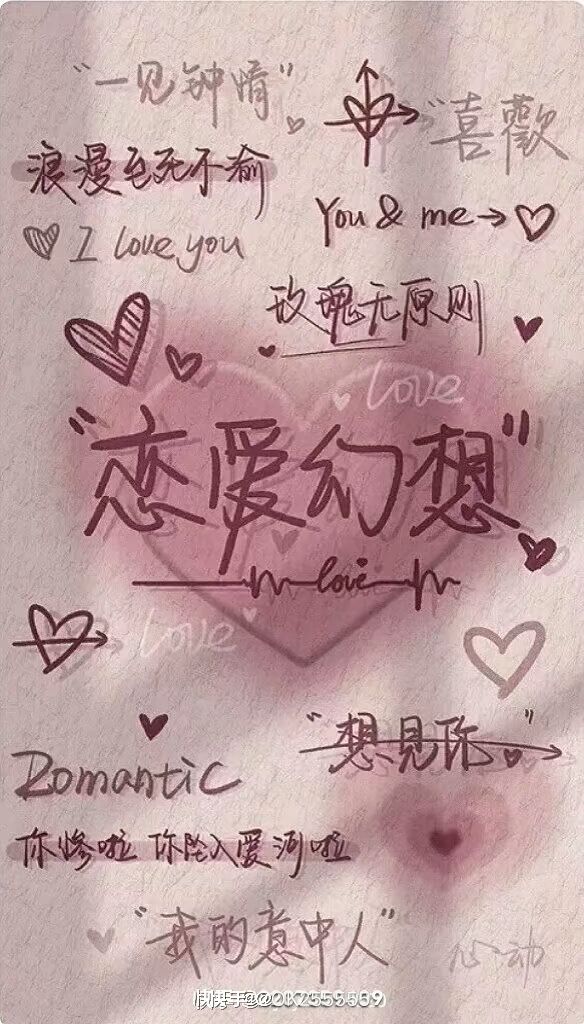 "一见钟情"
"喜歡
浪漫至死不渝
You & me→
I love you
玫瑰无原则
Love
"恋爱幻想"
love
Love
"想见你"
Romantic
你惨啦 你坠入爱河啦
"我的意中人"
心动